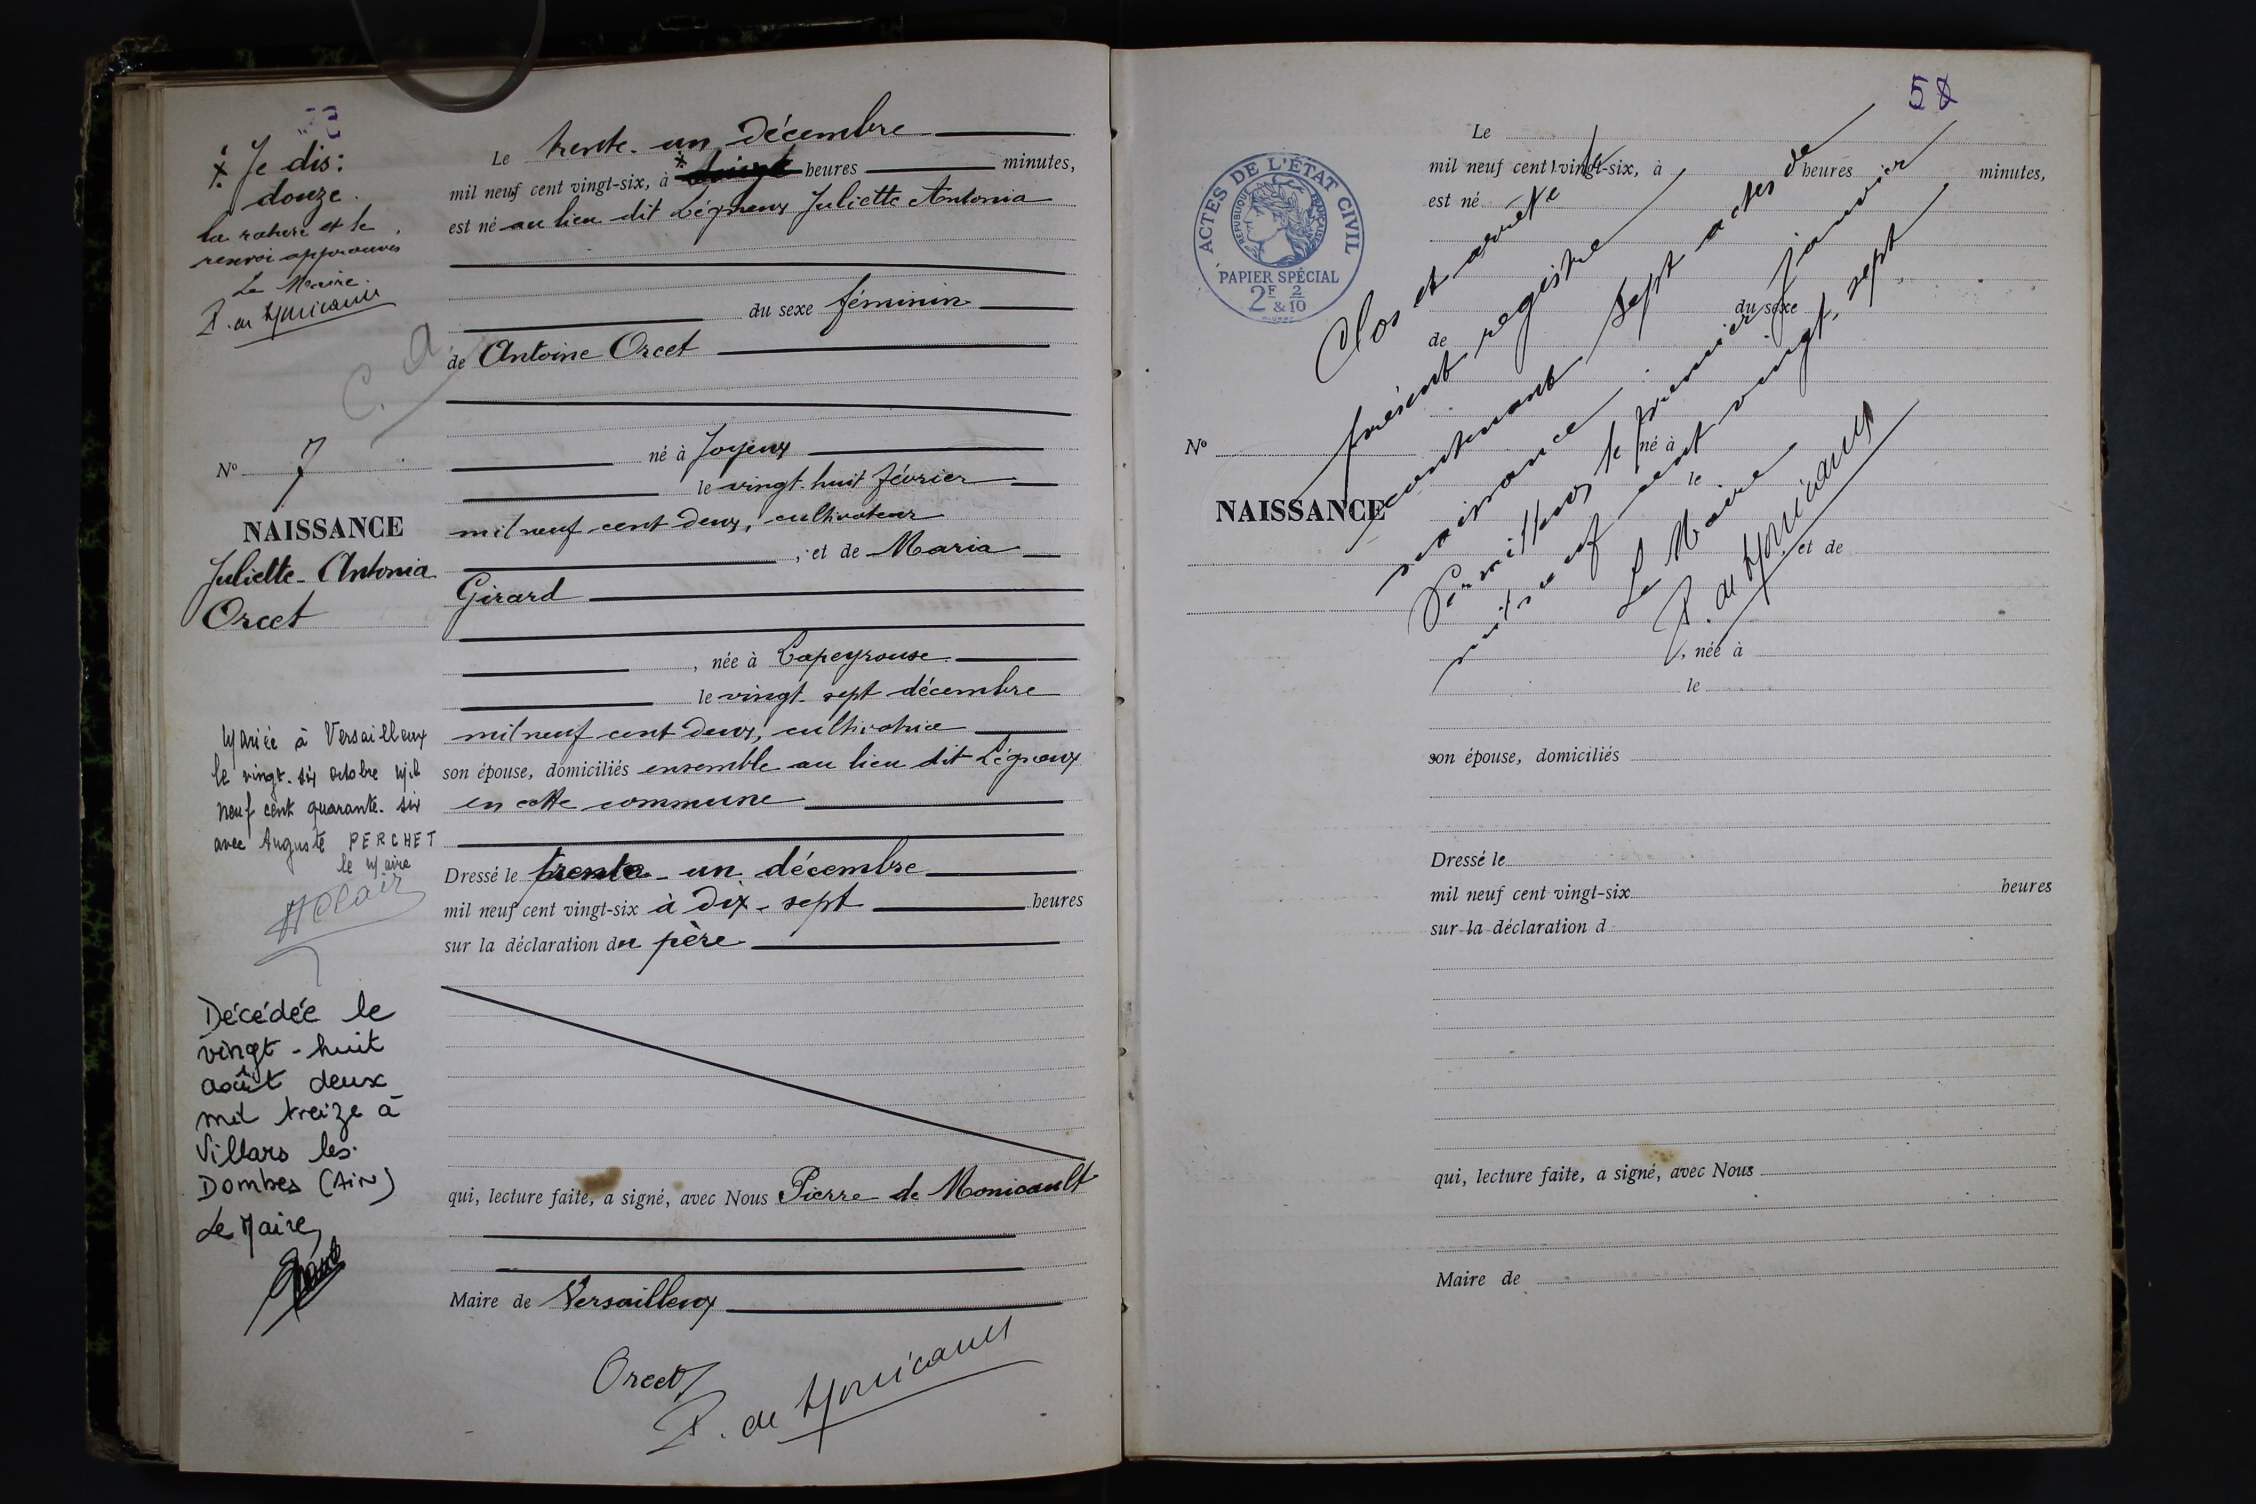 Je dis:
douze.
la rature et le
renvoi approuvés
Le Maire.
P. de Monicault
C. A
N° 7
NAISSANCE
Juliette-Antonia
Orcet
Mariée à Versailleux
le vingt-six octobre mil
neuf cent quarante-six
avec Auguste PERCHET
le Maire
Décédée le
vingt-huit
août deux
mil treize à
Villars les
Dombes (Ain)
Le Maire,
Le trente-un décembre
mil neuf cent vingt-six, à heures minutes,
est né au lieu dit Légneux Juliette Antonia
du sexe féminin
de Antoine Orcet
né à Joyeux
le vingt-huit février
mil neuf cent deux, cultivateur
, et de Maria
Girard
, née à Lapeyrouse
le vingt-sept décembre
mil neuf cent deux, cultivatrice
son épouse, domiciliés ensemble au lieu dit Légneux
en cette commune
Dressé le trente-un décembre
mil neuf cent vingt-six à dix-sept heures
sur la déclaration du père
qui, lecture faite, a signé, avec Nous Pierre de Monicault
Maire de Versailleux
Orcet
P. de Monicault
58
ACTES DE L'ÉTAT CIVIL
RÉPUBLIQUE FRANÇAISE
PAPIER SPÉCIAL
2F & 2/10
Le
mil neuf cent vingt-six, à heures minutes,
est né
du sexe
de
N°
né à
le
NAISSANCE
, et de
, née à
le
son épouse, domiciliés
Dressé le
mil neuf cent vingt-six heures
sur la déclaration d
qui, lecture faite, a signé, avec Nous
Maire de
Clos et arrêté le
présent registre
contenant sept actes de
naissance.
Versailleux le premier janvier
mil neuf cent vingt-sept
Le Maire
P. de Monicault